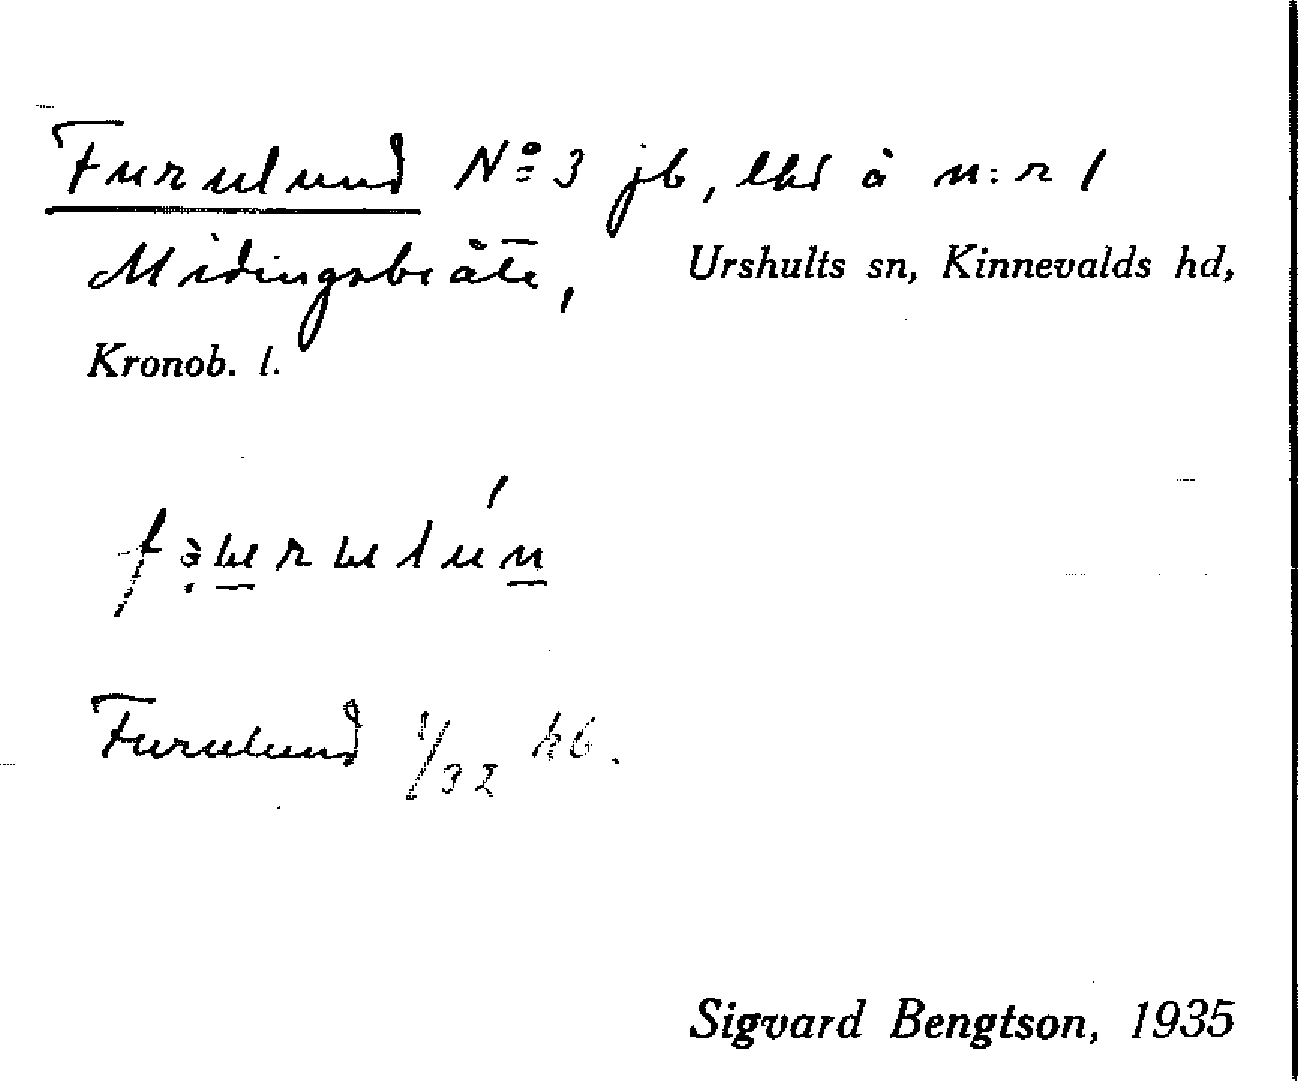 Furulund No 3 jb, lhd å n:r 1
Midingsbråte, Urshults sn, Kinnevalds hd,
Kronob. l.
Furulund 1/32 hb.
Sigvard Bengtson, 1935